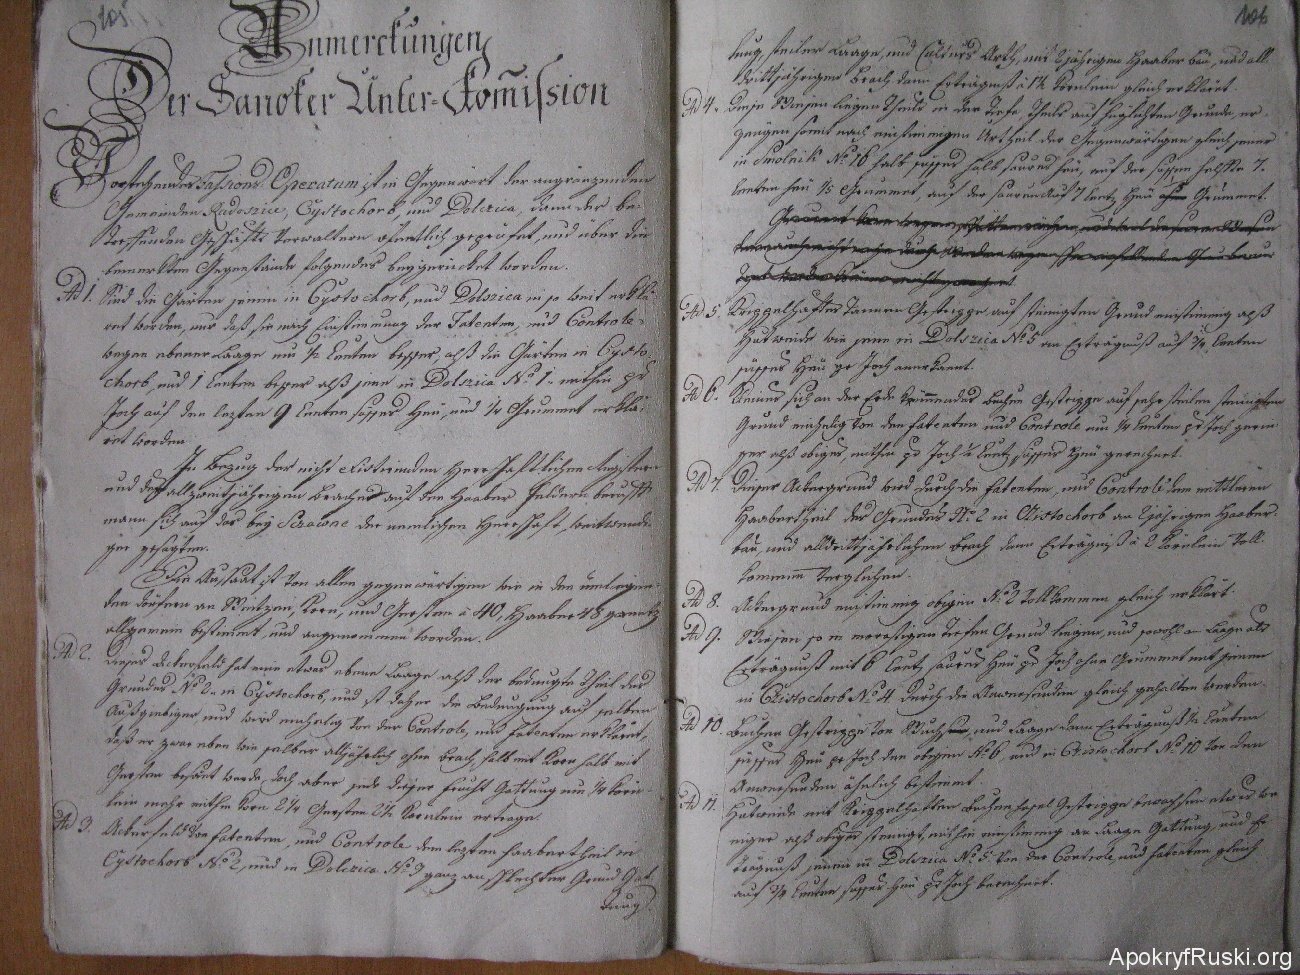 105
Anmerckungen
Der Sanoker Unter-Komission
Vorstehendes Fassions Operatum ist in Gegenwart der angränzenden
Gemeinden Radoszice, Czystochorb, und Dolzica, dann der be-
treffenden Geschäfts Verwaltern öfentlich geprüfet, und über die
bemerkten Gegenstände folgendes beygerücket worden.
Ad 1. Sind die Garten jenen in Czystochorb, und Dolszica in so weit erklä-
ret worden, nur daß sie nach Einstimmung der Fatenten, und Controle
wegen ebener Laage um ½ Centen besser, alß die Gärten in Czysto-
chorb, und 1 Centen besser alß jene in Dolszica No 1. mithin pr
Joch auf den lezten 9 Centen süsses Heu, und ¼ Grummet erklä-
ret worden
In Bezug der nicht existirenden Herrschaftlichen Register
und des allzweitjährigen Braches auf den Haaber Feldern beruft
mann sich auf das bey Szczawne der nemlichen Herrschaft,
gesagten.
Die Aussaat ist von allen gegenwärtigen wie in den umliegen-
den Dörfern an Weitzen, Korn, und Gersten à 40, Haaber 48 garnetz
allgemein bestimmt, und angenommen worden.
Ad 2. Dieses Ackerfeld hat eine etwas ebene Laage alß der bedungte Theil des
Grundes No 2. in Czystochorb, und ist daher die Bedüngung auf selben
Außgiebiger und wird einhelig von der Controle, und Fatenten erkläret,
daß er zwar eben wie selber alljährlich ohne Brach, halb mit Korn halb mit
Gersten besäet werde, doch aber jede dieser Frucht Gattung um ¼ Körn-
lein mehr mithin Korn 2¼ Gersten 2½ Körnlein ertrage.
Ad 3. Ackerfeld von Fatenten, und Controle dem lezten Haabertheil in
Czystochorb No 2, und in Dolszica No 3 ganz an schlechter Grund Gat-
tung
106
tung, steiler Laage, und Culturs Arth, mit 2jährigen Haaber bau, und all-
drittjährigen Brach dann Erträgnuß à 1¾ Körnlein gleich erkläret.
Ad 4. Diese Wiesen liegen theils in der Tiefe, theils auf Grunde, er-
zeugen somit nach einstimmigen Urtheil der Gegenwärtigen gleich jenen
in Smolnik No 16 halb süsses halb saures Heu, auf der süssen helfte 7.
Centen Heu 1/5 Grummet, auf der sauren auch 7 Centz Heu ohne Grummet.
Ad 5. Krüppelhaftes Tannen Gestrippe auf steinigten Grund einstimmig alß
Hutweide wie jene in Dolszica No 5 an Erträgnuß auf ¾ Centen
süsses Heu pr Joch anerkannt.
Ad 6. Kleines sich an der Erde krümmendes Buchen Gestrippe auf sehr steilen steinigten
Grund einhelig von den Fatenten und Controle um ¼ Centen pr Joch gerin-
ger alß obiges mithin pr Joch ½ Centz süsses Heu gerechnet.
Ad 7. Dieser Ackergrund wird durch die Fatenten, und Controle dem mittleren
Haabertheil des Grundes No 2 in Czistochorb an 2jährigen Haaber-
bau, und alldrittjährlichen Brach dann Erträgniß à 2 Körnlein voll-
kommen verglichen.
Ad 8. Ackergrund einstimmig obigen No 2 vollkommen gleich erklärt.
Ad 9. Wiesen so in morastigen tiefen Grund liegen, und sowohl an Laage alß
Erträgnuß mit 6 Centz saures Heu pr Joch ohne Grummet mit jenen
in Czistochorb No 4 durch die Anwesenden gleich gehalten werden.
Ad 10. Buchen Gestrippe von Wuchs, und Laage dann Erträgnuß ½ Centen
süsses Heu pr Joch dem obigen No 6, und in Czistochorb No 10 von den
Anwesenden ähnlich bestimmt
Ad 11. Hutweide mit Krüppelhaften Buchen Gestrippe bewachsen etwas we-
niger alß obiges steinigt, mithin einstimmig an Laage Gattung, und Er-
trägnuß jenen in Dolszica No 5 von der Controle, und Fatenten gleich
auf ¾ Centen süsses Heu pr Joch berechnet.
ApokryfRuski.org